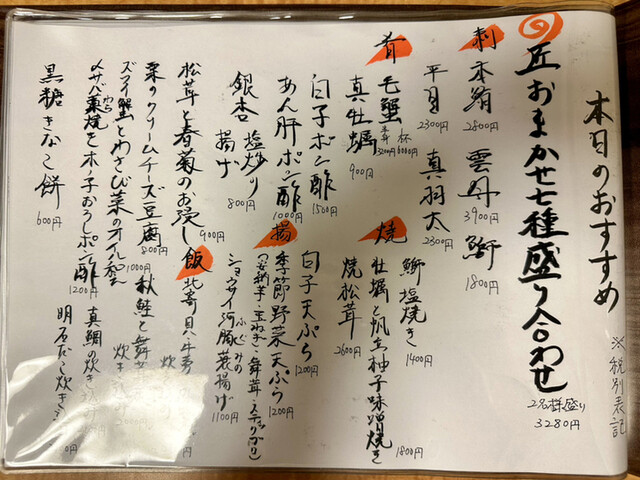 本日のおすすめ
※税別表記
匠おまかせ七種盛り合わせ
2名様盛り
3280円
刺
本鮪
2800円
雲丹
3900円
鰤
1800円
平目
2300円
真羽太
2300円
肴
毛蟹
杯 6000円
真牡蠣
900円
白子ポン酢
1500円
あん肝ポン酢
1000円
銀杏
塩炒り
揚げ
800円
松茸と春菊のお浸し
900円
栗のクリームチーズ豆腐
800円
ズワイ蟹とわさび菜のオイル和え
1000円
〆サバ藁焼き
おろしポン酢
1200円
黒糖きなこ餅
600円
焼
鰤塩焼き
1400円
牡蠣と帆立柚子味噌焼き
1800円
焼松茸
2600円
揚
白子天ぷら
1200円
季節野菜天ぷら
1200円
(安納芋・玉ねぎ・舞茸
ショウサイ河豚
唐揚げ
1100円
飯
北寄貝と牛蒡
炊き
秋鮭と舞
炊き
真鯛の炊き
明石だこ炊き
円